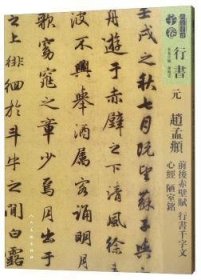 行書
元
趙孟頫
前後赤壁賦 行書千字文
心經 陋室銘
壬戌之秋七月既望蘇子與
舟遊於赤壁之下清風徐来
不興舉酒屬客誦明月
窈窕之章少焉月出於
之上徘徊於斗牛之間白露